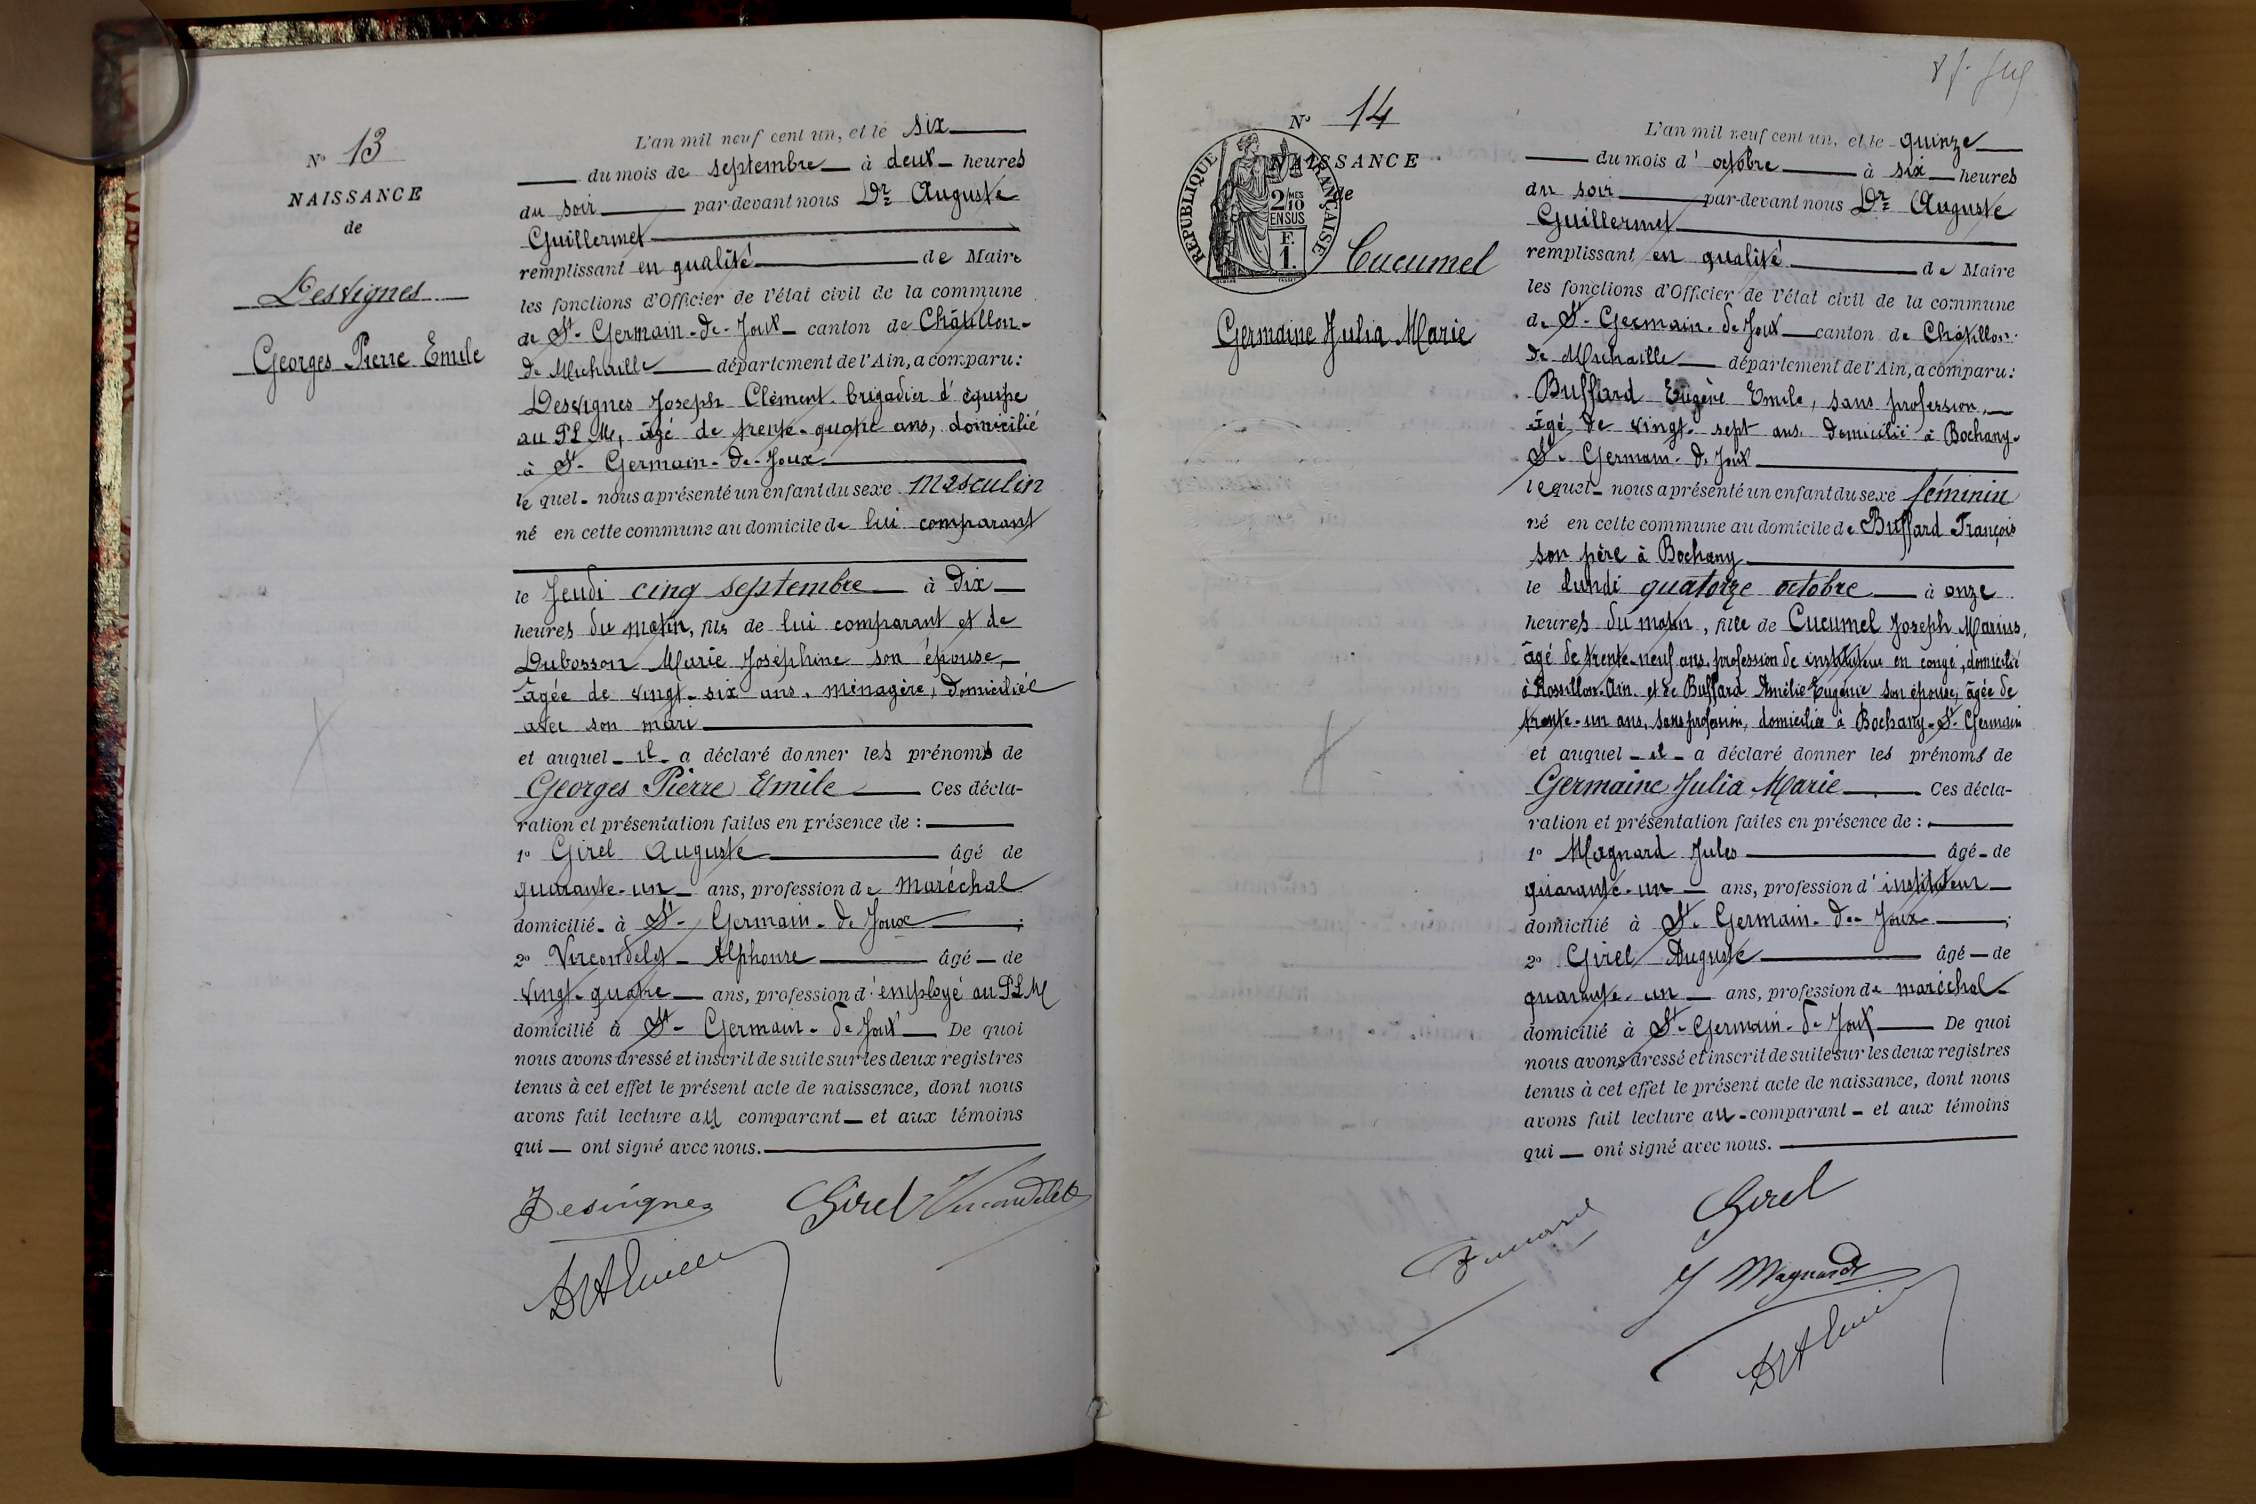 N° 13
NAISSANCE
de
Desvignes
Georges Pierre Emile
L'an mil neuf cent un, et le six
du mois de septembre à deux heures
du soir par-devant nous Dr Auguste
Guillermet
remplissant en qualité de Maire
les fonctions d'Officier de l'état civil de la commune
de St-Germain-de-Joux canton de Châtillon-
de Michaille département de l'Ain, a comparu:
Desvignes Joseph Clément brigadier d'équipe
au PLM, âgé de trente-quatre ans, domicilié
à St-Germain-de-Joux
lequel nous a présenté un enfant du sexe masculin
né en cette commune au domicile de lui comparant
le Jeudi cinq septembre à dix
heures du matin, fils de lui comparant et de
Dubosson Marie Joséphine son épouse,
âgée de vingt-six ans, ménagère, domiciliée
avec son mari
et auquel il a déclaré donner les prénoms de
Georges Pierre Emile Ces décla-
ration et présentation faites en présence de :
1° Girel Auguste âgé de
quarante-un ans, profession de maréchal
domicilié à St-Germain-de Joux ;
2° Vircondelet Alphonse âgé de
vingt-quatre ans, profession d'employé au PLM
domicilié à St-Germain-de Joux De quoi
nous avons dressé et inscrit de suite sur les deux registres
tenus à cet effet le présent acte de naissance, dont nous
avons fait lecture au comparant et aux témoins
qui ont signé avec nous.
Desvignes Girel Vircondelet
N° 14
NAISSANCE
de
REPUBLIQUE FRANÇAISE
2/10 MES
EN SUS
F.
1.
Cucumel
Germaine Julia Marie
L'an mil neuf cent un, et le quinze
du mois d'octobre à six heures
du soir par-devant nous Dr Auguste
Guillermet
remplissant en qualité de Maire
les fonctions d'Officier de l'état civil de la commune
de St-Germain-de Joux canton de Châtillon
de Michaille département de l'Ain, a comparu:
Buffard Eugène Emile, sans profession,
âgé de vingt-sept ans domicilié à Bochany-
St-Germain-de Joux
lequel nous a présenté un enfant du sexe féminin
né en cette commune au domicile de Buffard François
son père à Bochany
le lundi quatorze octobre à onze
heures du matin, fille de Cucumel Joseph Marius,
âgé de trente-neuf ans, profession de instituteur en congé, domicilié
à Rossillon-Ain et de Buffard Amélie Eugénie son épouse, âgée de
trente-un ans, sans profession, domiciliée à Bochany-St-Germain
et auquel il a déclaré donner les prénoms de
Germaine Julia Marie Ces décla-
ration et présentation faites en présence de :
1° Magnard Jules âgé de
quarante-un ans, profession d'instituteur
domicilié à St-Germain-de-Joux ;
2° Girel Auguste âgé de
quarante-un ans, profession de maréchal
domicilié à St-Germain-de Joux De quoi
nous avons dressé et inscrit de suite sur les deux registres
tenus à cet effet le présent acte de naissance, dont nous
avons fait lecture au comparant et aux témoins
qui ont signé avec nous.
Girel
J Magnard